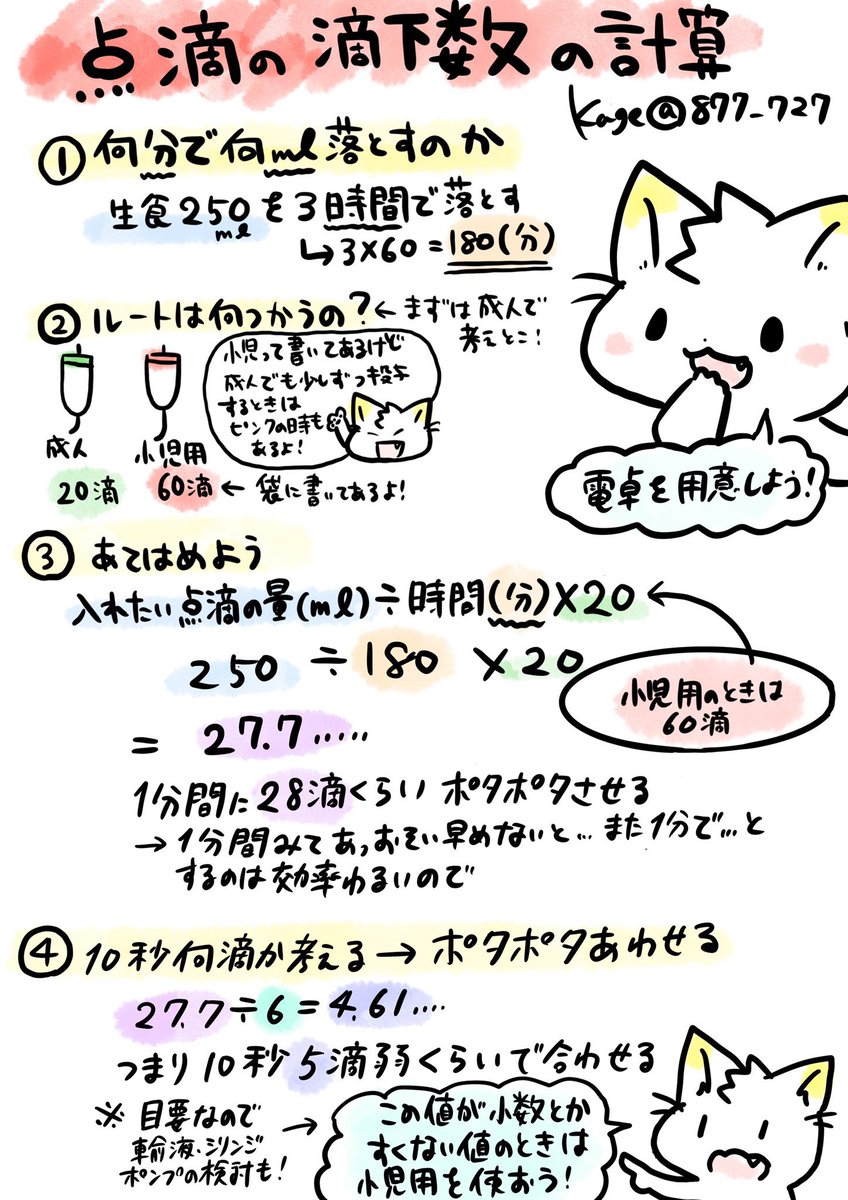 点滴の滴下数の計算
Kage@877_727
① 何分で何ml落とすのか
生食250mlを3時間で落とす
↳3×60=180(分)
② ルートは何つかうの?←まずは成人で
考えとこ!
小児って書いてあるけど
成人でも少しずつ投与
するときは
ピンクの時も
あるよ!
成人
小児用
20滴
60滴←袋に書いてあるよ!
電卓を用意しよう!
③ あてはめよう
入れたい点滴の量(ml)÷時間(分)×20
250÷180×20
小児用のときは
60滴
=27.7.....
1分間に28滴くらいポタポタさせる
→1分間みてあっおそい早めないと…また1分で…と
するのは効率わるいので
④ 10秒何滴か考える→ポタポタあわせる
27.7÷6=4.61....
つまり10秒5滴弱くらいで合わせる
※目要なので
輸液、シリンジ
ポンプの検討も!
→
この値が小数とか
すくない値のときは
小児用を使おう!